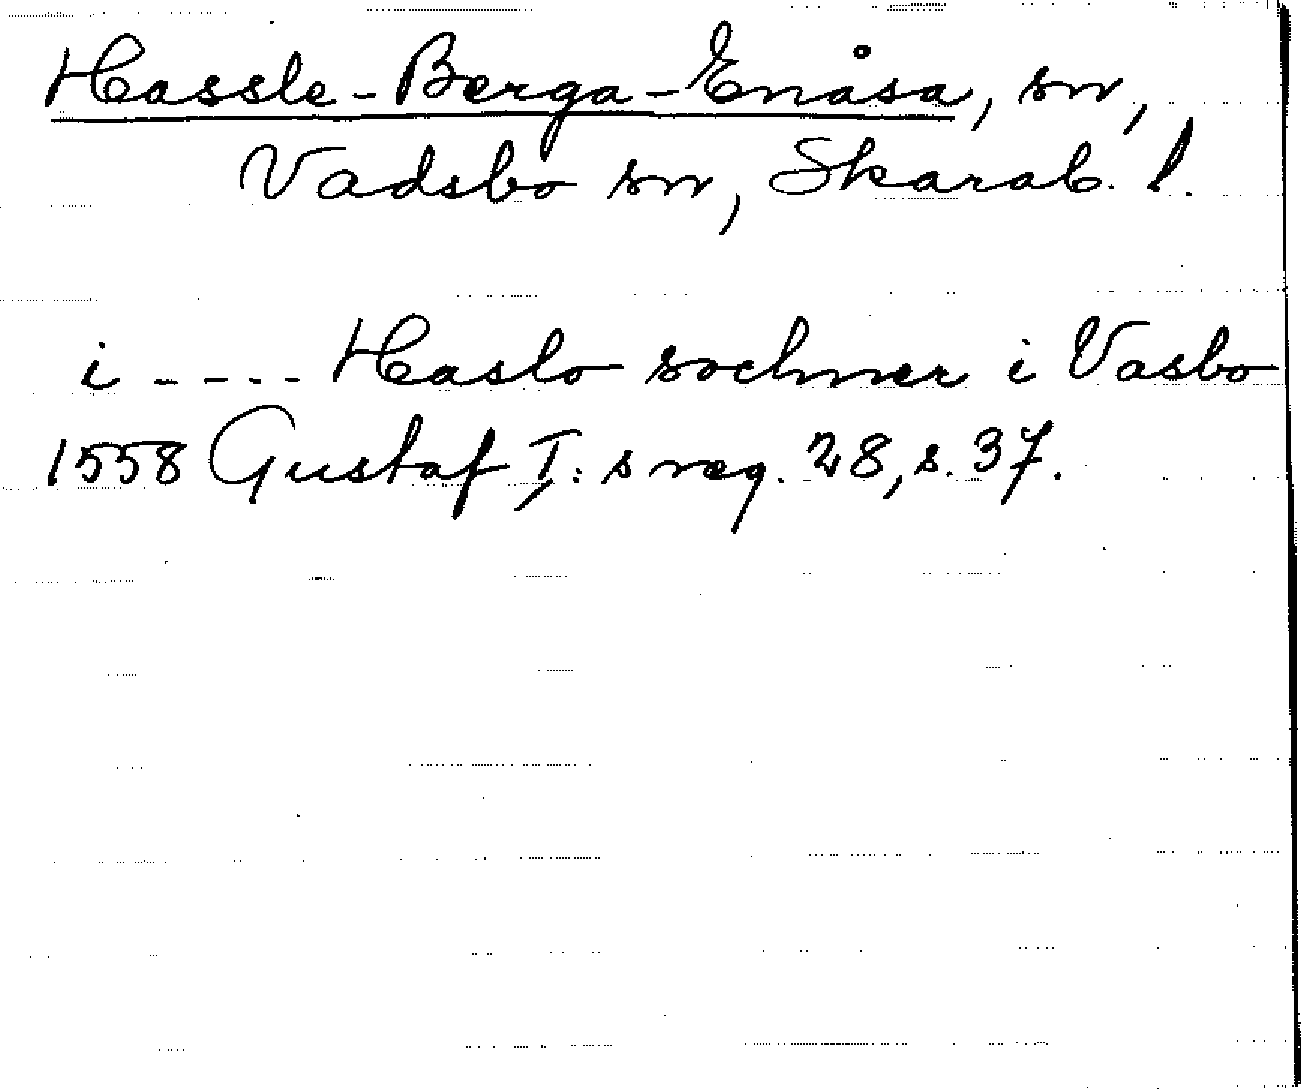 Hassle-Berga-Enåsa, sn,
Vadsbo sn, Skarab. l.
i - - - - Haslo sochner i Vasbo
1558 Gustaf I:s reg. 28, s. 37.